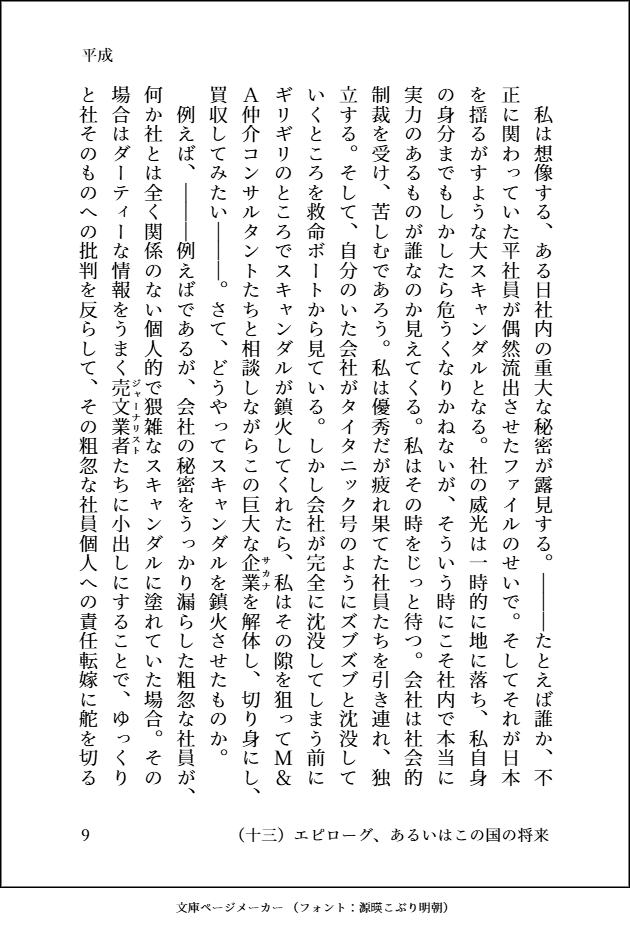 平成
　私は想像する、ある日社内の重大な秘密が露見する。―――たとえば誰か、不
正に関わっていた平社員が偶然流出させたファイルのせいで。そしてそれが日本
を揺るがすような大スキャンダルとなる。社の威光は一時的に地に落ち、私自身
の身分までもしかしたら危うくなりかねないが、そういう時にこそ社内で本当に
実力のあるものが誰なのか見えてくる。私はその時をじっと待つ。会社は社会的
制裁を受け、苦しむであろう。私は優秀だが疲れ果てた社員たちを引き連れ、独
立する。そして、自分のいた会社がタイタニック号のようにズブズブと沈没して
いくところを救命ボートから見ている。しかし会社が完全に沈没してしまう前に
ギリギリのところでスキャンダルが鎮火してくれたら、私はその隙を狙ってM＆
A仲介コンサルタントたちと相談しながらこの巨大な企業サカナを解体し、切り身にし、
買収してみたい―――。さて、どうやってスキャンダルを鎮火させたものか。
　例えば、―――例えばであるが、会社の秘密をうっかり漏らした粗忽な社員が、
何か社とは全く関係のない個人的で猥雑なスキャンダルに塗れていた場合。その
場合はダーティーな情報をうまく売文業者ジャーナリストたちに小出しにすることで、ゆっくり
と社そのものへの批判を反らして、その粗忽な社員個人への責任転嫁に舵を切る
9
（十三）エピローグ、あるいはこの国の将来
文庫ページメーカー（フォント：源暎こぶり明朝）